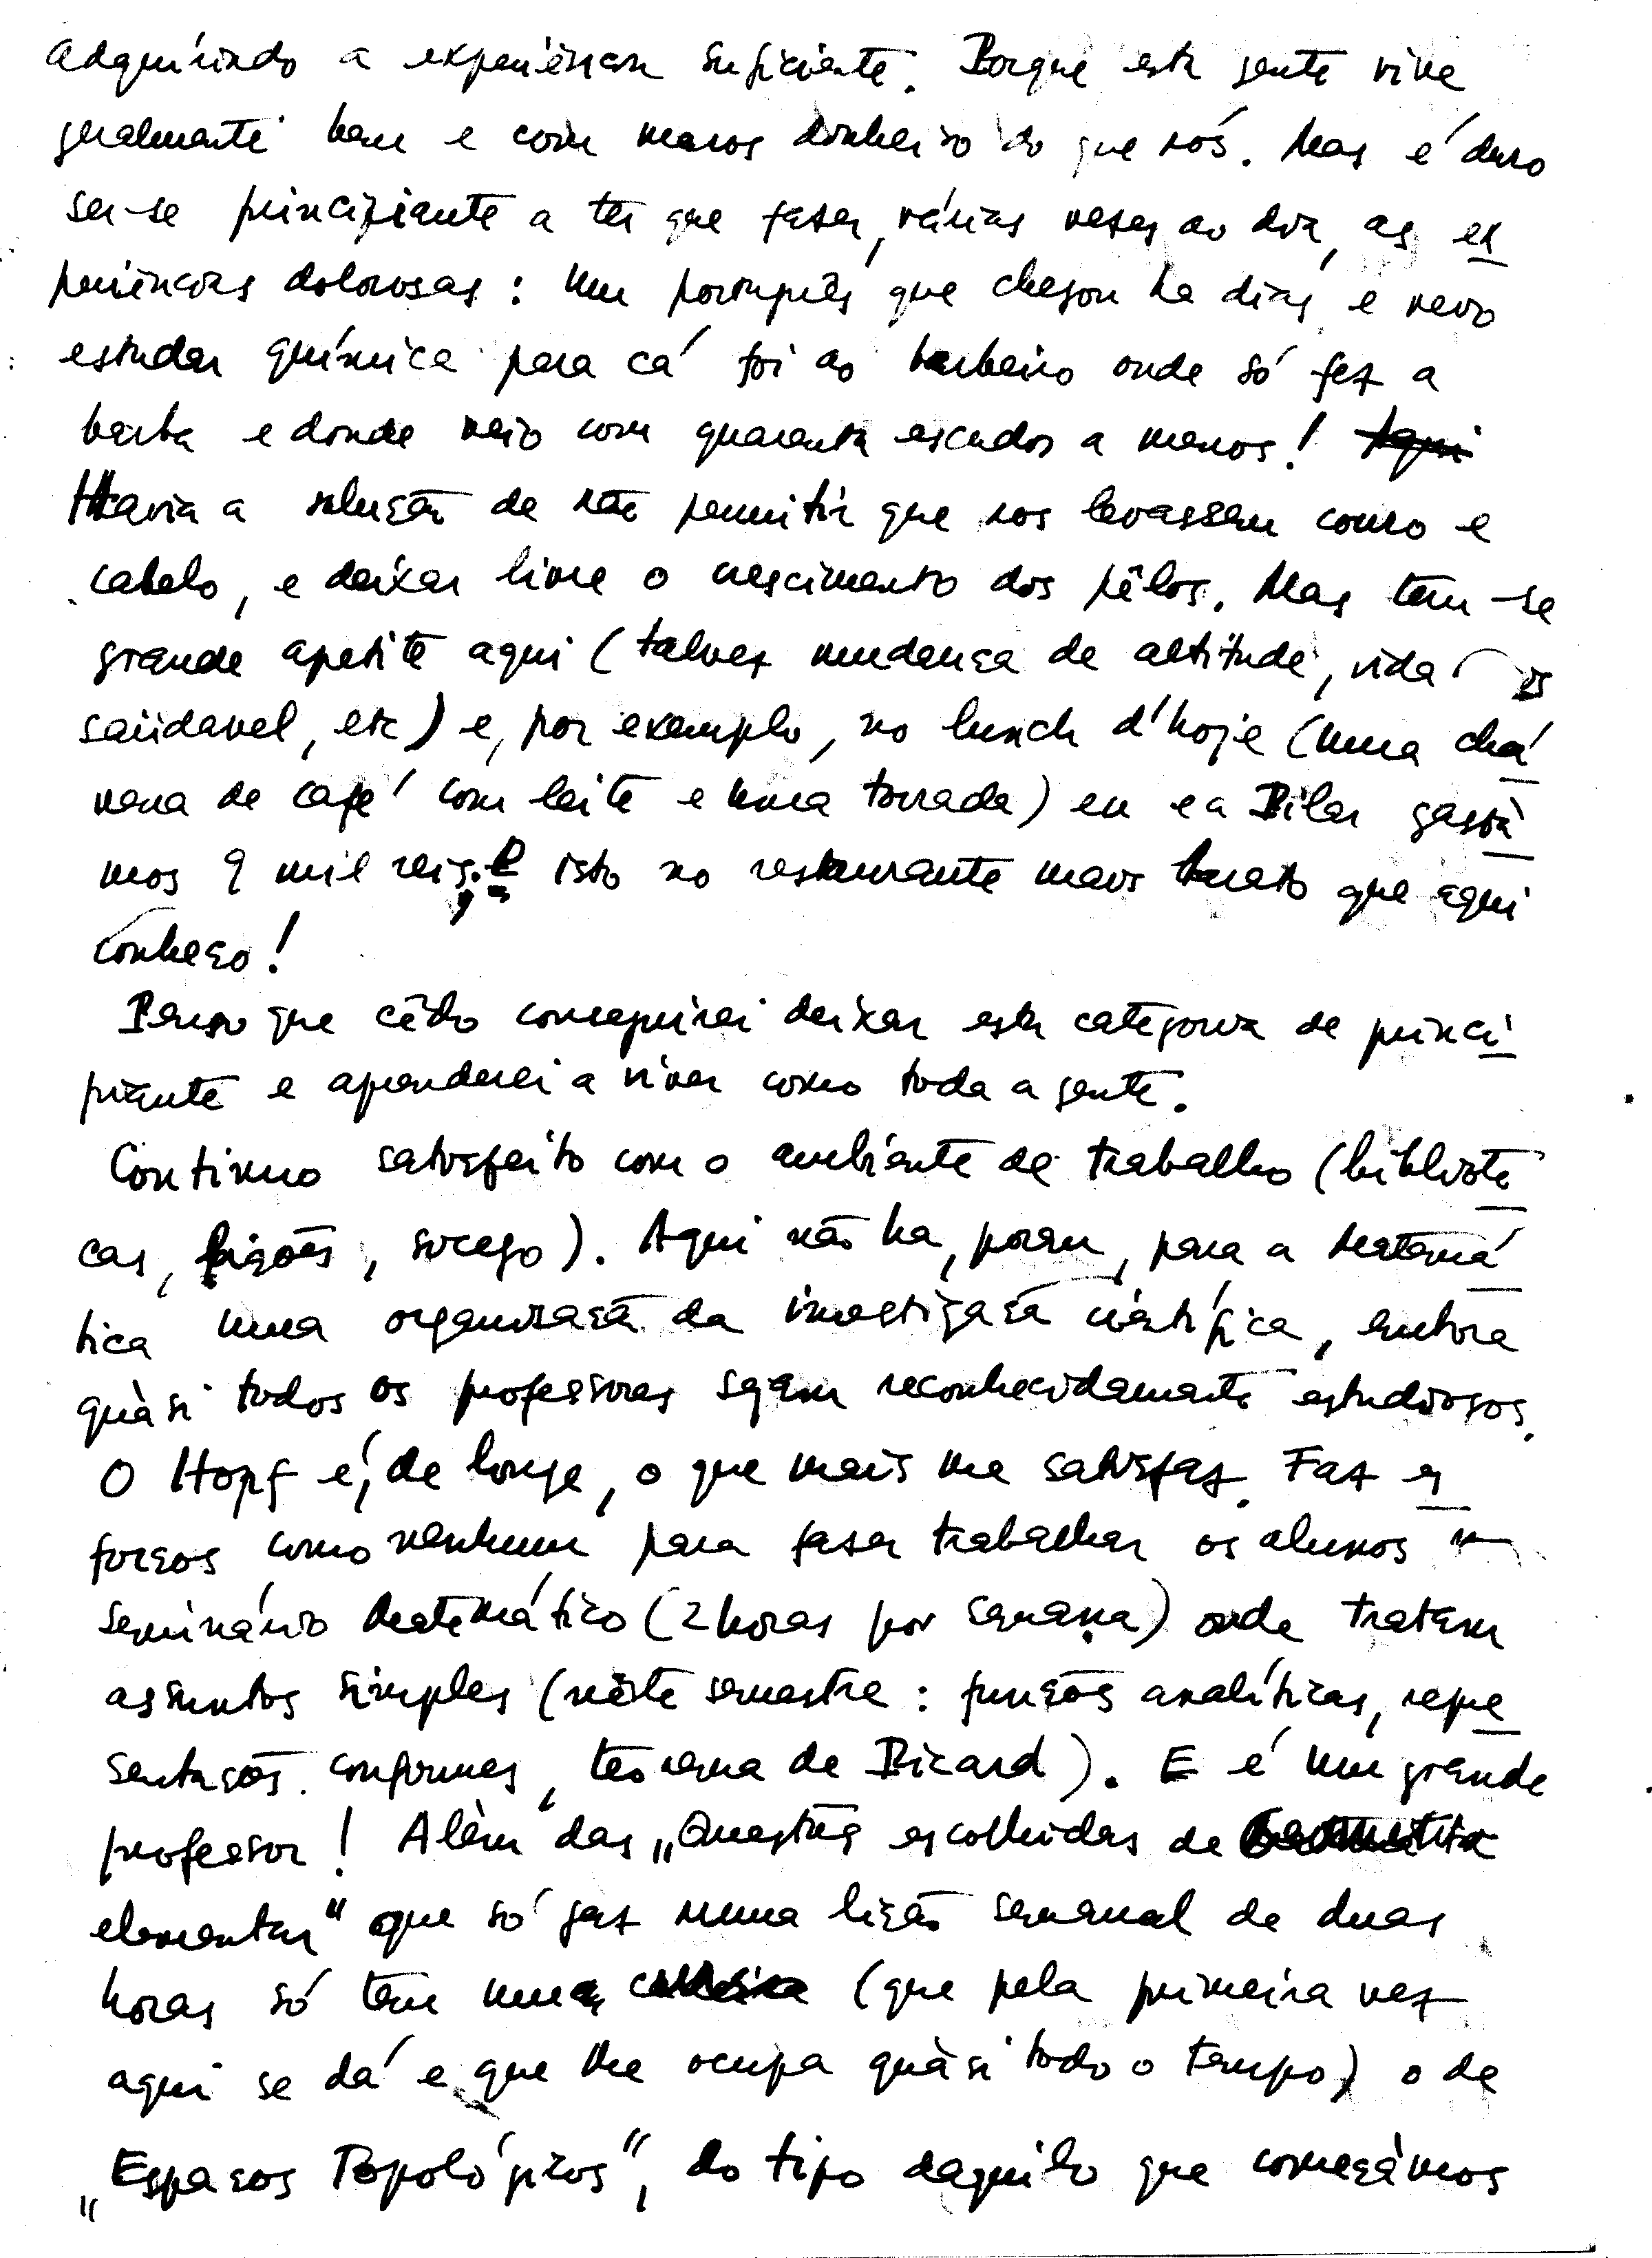 adquirindo a experiência suficiente. Porque esta gente vive
geralmente bem e com menos dinheiro do que nós. Mas é duro
ser-se principiante a ter que fazer, várias vezes ao dia, as ex
periências dolorosas: Um português que chegou ha dias e veio
estudar química para cá foi ao barbeiro onde só fez a
barba e donde veio com quarenta escudos a menos! Aqui
Havia a solução de não permitir que nos levassem couro e
cabelo, e deixar livre o crescimento dos pêlos. Mas tem-se
grande apetite aqui (talvez mudança de altitude, vida
saüdavel, etc) e, por exemplo, no lunch d'hoje (uma chá
vena de café com leite e uma torrada) eu e a Pilar gastá
mos 9 mil reis; e isto no restaurante mais barato que aqui
conheço!
Penso que cêdo conseguirei deixar esta categoria de princi
piante e aprenderei a viver como toda a gente.
Continuo satisfeito com o ambiente de trabalho (bibliote
cas, lições, socego). Aqui não ha, porem, para a Matemá
tica uma organização da investigação científica, embora
quàsi todos os professores sejam reconhecidamente estudiosos.
O Hopf é, de longe, o que mais me satisfaz. Faz es
forços como nenhum para fazer trabalhar os alunos no
seminário Matemático (2 horas por semana) onde tratam
assuntos simples (nêste semestre: funções analíticas, repre
sentações conformes, teorema de Picard). E é um grande
professor! Além das „Questões escolhidas de
elementar" que só faz numa lição semanal de duas
horas só tem um (que pela primeira vez
aqui se dá e que lhe ocupa quàsi todo o tempo) o de
„Espaços Topológicos", do tipo daquilo que começámos